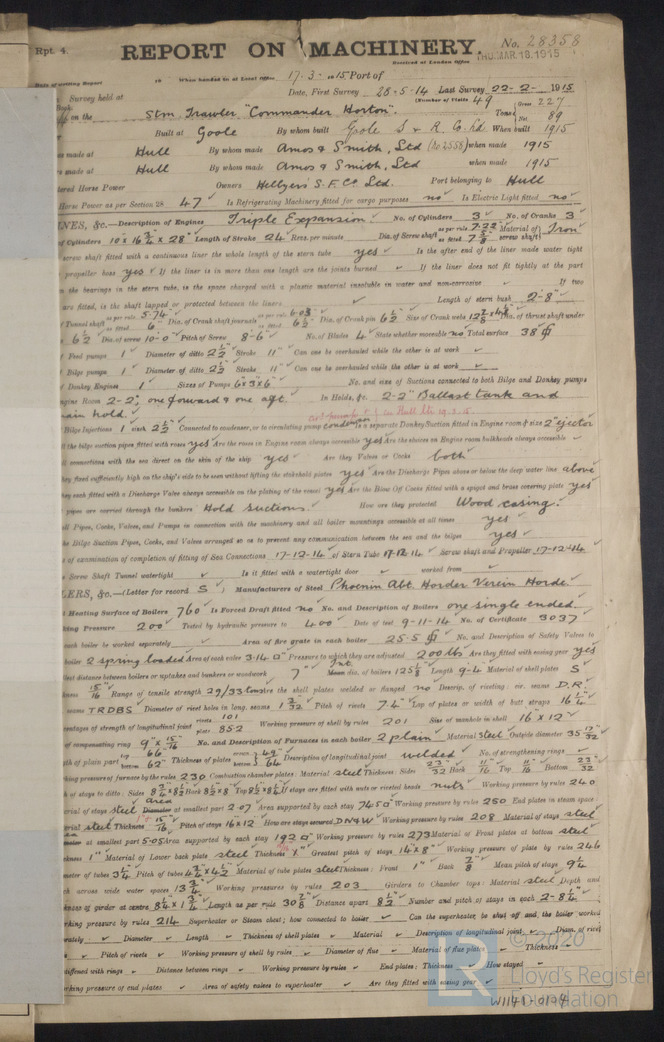 Rpt. 4.
REPORT ON MACHINERY.
No. 28358
Received at London Office THU. MAR. 18. 1915
Date of writing Report 19 When handed in at Local Office 17.3.1915 Port of
Survey held at Date, First Survey 28-5-14 Last Survey 22-2-1915
(Number of Visits 49
on the Stm Trawler "Commander Horton". Tons Gross 227 Net 89
Built at Goole By whom built Goole S & R. Co. Ld. When built 1915
made at Hull By whom made Amos & Smith, Ltd (No 2558) when made 1915
made at Hull By whom made Amos & Smith, Ltd when made 1915
Horse Power Owners Hellyer's S.F. Co Ltd. Port belonging to Hull
Horse Power as per Section 28 47 Is Refrigerating Machinery fitted for cargo purposes no Is Electric Light fitted no
INES, &c.—Description of Engines Triple Expansion No. of Cylinders 3 No. of Cranks 3
of Cylinders 10 x 16 3/4 x 28" Length of Stroke 24 Revs. per minute Dia. of Screw shaft as per rule 7.22 as fitted 7 5/8 Material of screw shaft Iron
screw shaft fitted with a continuous liner the whole length of the stern tube yes Is the after end of the liner made water tight
propeller boss yes If the liner is in more than one length are the joints burned If the liner does not fit tightly at the part
the bearings in the stern tube, is the space charged with a plastic material insoluble in water and non-corrosive If two
are fitted, is the shaft lapped or protected between the liners Length of stern bush 2-8"
Tunnel shaft as per rule 5.74" as fitted 6" Dia. of Crank shaft journals as per rule 6.03" as fitted 6 1/2" Dia. of Crank pin 6 1/2 Size of Crank webs Dia. of thrust shaft under
6 1/2 Dia. of screw 10-0 Pitch of Screw 8-6" No. of Blades 4 State whether moveable no Total surface 38
Feed pumps 1 Diameter of ditto 2 1/2 Stroke 11" Can one be overhauled while the other is at work
Bilge pumps 1 Diameter of ditto 2 1/2 Stroke 11" Can one be overhauled while the other is at work
of Donkey Engines 1 Sizes of Pumps 6x3x6" No. and size of Suctions connected to both Bilge and Donkey pumps
Engine Room 2-2", one forward & one aft. In Holds, &c. 2-2" Ballast tank and
main hold.
Bilge Injections 1 size 2 1/2 Connected to condenser, or to circulating pump condenser Is a separate Donkey Suction fitted in Engine room & size 2" ejector
the bilge suction pipes fitted with roses yes Are the roses in Engine room always accessible yes Are the sluices on Engine room bulkheads always accessible
connections with the sea direct on the skin of the ship yes Are they Valves or Cocks both
they fixed sufficiently high on the ship's side to be seen without lifting the stokehold plates yes Are the Discharge Pipes above or below the deep water line above
they each fitted with a Discharge Valve always accessible on the plating of the vessel yes Are the Blow Off Cocks fitted with a spigot and brass covering plate yes
pipes are carried through the bunkers Hold suctions. How are they protected Wood casing.
all Pipes, Cocks, Valves, and Pumps in connection with the machinery and all boiler mountings accessible at all times yes
the Bilge Suction Pipes, Cocks, and Valves arranged so as to prevent any communication between the sea and the bilges yes
of examination of completion of fitting of Sea Connections 17-12-14 of Stern Tube 17-12-14 Screw shaft and Propeller 17-12-14
Screw Shaft Tunnel watertight Is it fitted with a watertight door worked from
LERS, &c.—(Letter for record S) Manufacturers of Steel Phoenix Abt. Horder Verein Horde
Heating Surface of Boilers 760 Is Forced Draft fitted no No. and Description of Boilers one single ended.
Working Pressure 200 Tested by hydraulic pressure to 400 Date of test 9-11-14 No. of Certificate 3037
each boiler be worked separately Area of fire grate in each boiler 25.5 No. and Description of Safety Valves to
boiler 2 spring loaded Area of each valve 3.14 Pressure to which they are adjusted 200 lbs Are they fitted with easing gear yes
distance between boilers or uptakes and bunkers or woodwork 7" Int. dia. of boilers 125 5/8 Length 9-4 Material of shell plates S
15/16 Range of tensile strength 29/33 tons Are the shell plates welded or flanged no Descrip. of riveting: cir. seams D.R.
seams TRDBS Diameter of rivet holes in long. seams 1 3/32 Pitch of rivets 7 4" Lap of plates or width of butt straps 16 1/4
percentages of strength of longitudinal joint rivets 101 plate 85.2 Working pressure of shell by rules 201 Size of manhole in shell 16" x 12"
of compensating ring 9" x 15/16 No. and Description of Furnaces in each boiler 2 plain Material steel Outside diameter 35 13/32
of plain part top 66" bottom 62" Thickness of plates crown 49/64 bottom Description of longitudinal joint welded No. of strengthening rings
Working pressure of furnace by the rules 230 Combustion chamber plates: Material steel Thickness: Sides 23/32 Back 11/16 Top 11/16 Bottom 23/32
of stays to ditto: Sides 8 3/4 x 8 1/2 Back 8 1/2 x 8" Top 9 1/2 x 8 1/2 If stays are fitted with nuts or riveted heads nuts Working pressure by rules 240
Material of stays steel area at smallest part 2.07 Area supported by each stay 74.5 Working pressure by rules 250 End plates in steam space
steel Thickness 15/16 Pitch of stays 16 x 12 How are stays secured DN&W Working pressure by rules 208 Material of stays steel
at smallest part 5.05 Area supported by each stay 192 Working pressure by rules 273 Material of Front plates at bottom steel
1" Material of Lower back plate steel Thickness Greatest pitch of stays 14" x 8" Working pressure of plate by rules 246
Diameter of tubes 3 1/4 Pitch of tubes 4 3/4 x 4 1/2 Material of tube plates steel Thickness: Front 1" Back 7/8 Mean pitch of stays 9 1/4
across wide water spaces 13 3/4 Working pressures by rules 203 Girders to Chamber tops: Material steel Depth and
thickness of girder at centre 8 1/4 x 1 3/4 Length as per rule 30 7/8 Distance apart 8 1/2 Number and pitch of stays in each 2-8 1/4
Working pressure by rules 214 Superheater or Steam chest; how connected to boiler Can the superheater be shut off and the boiler worked
separately Diameter Length Thickness of shell plates Material Description of longitudinal joint Diam. of rivet
Pitch of rivets Working pressure of shell by rules Diameter of flue Material of flue plates Thickness
stiffened with rings Distance between rings Working pressure by rules End plates: Thickness How stayed
Working pressure of end plates Area of safety valves to superheater Are they fitted with easing gear
© 2020
Lloyd's Register
Foundation
W1141-0194